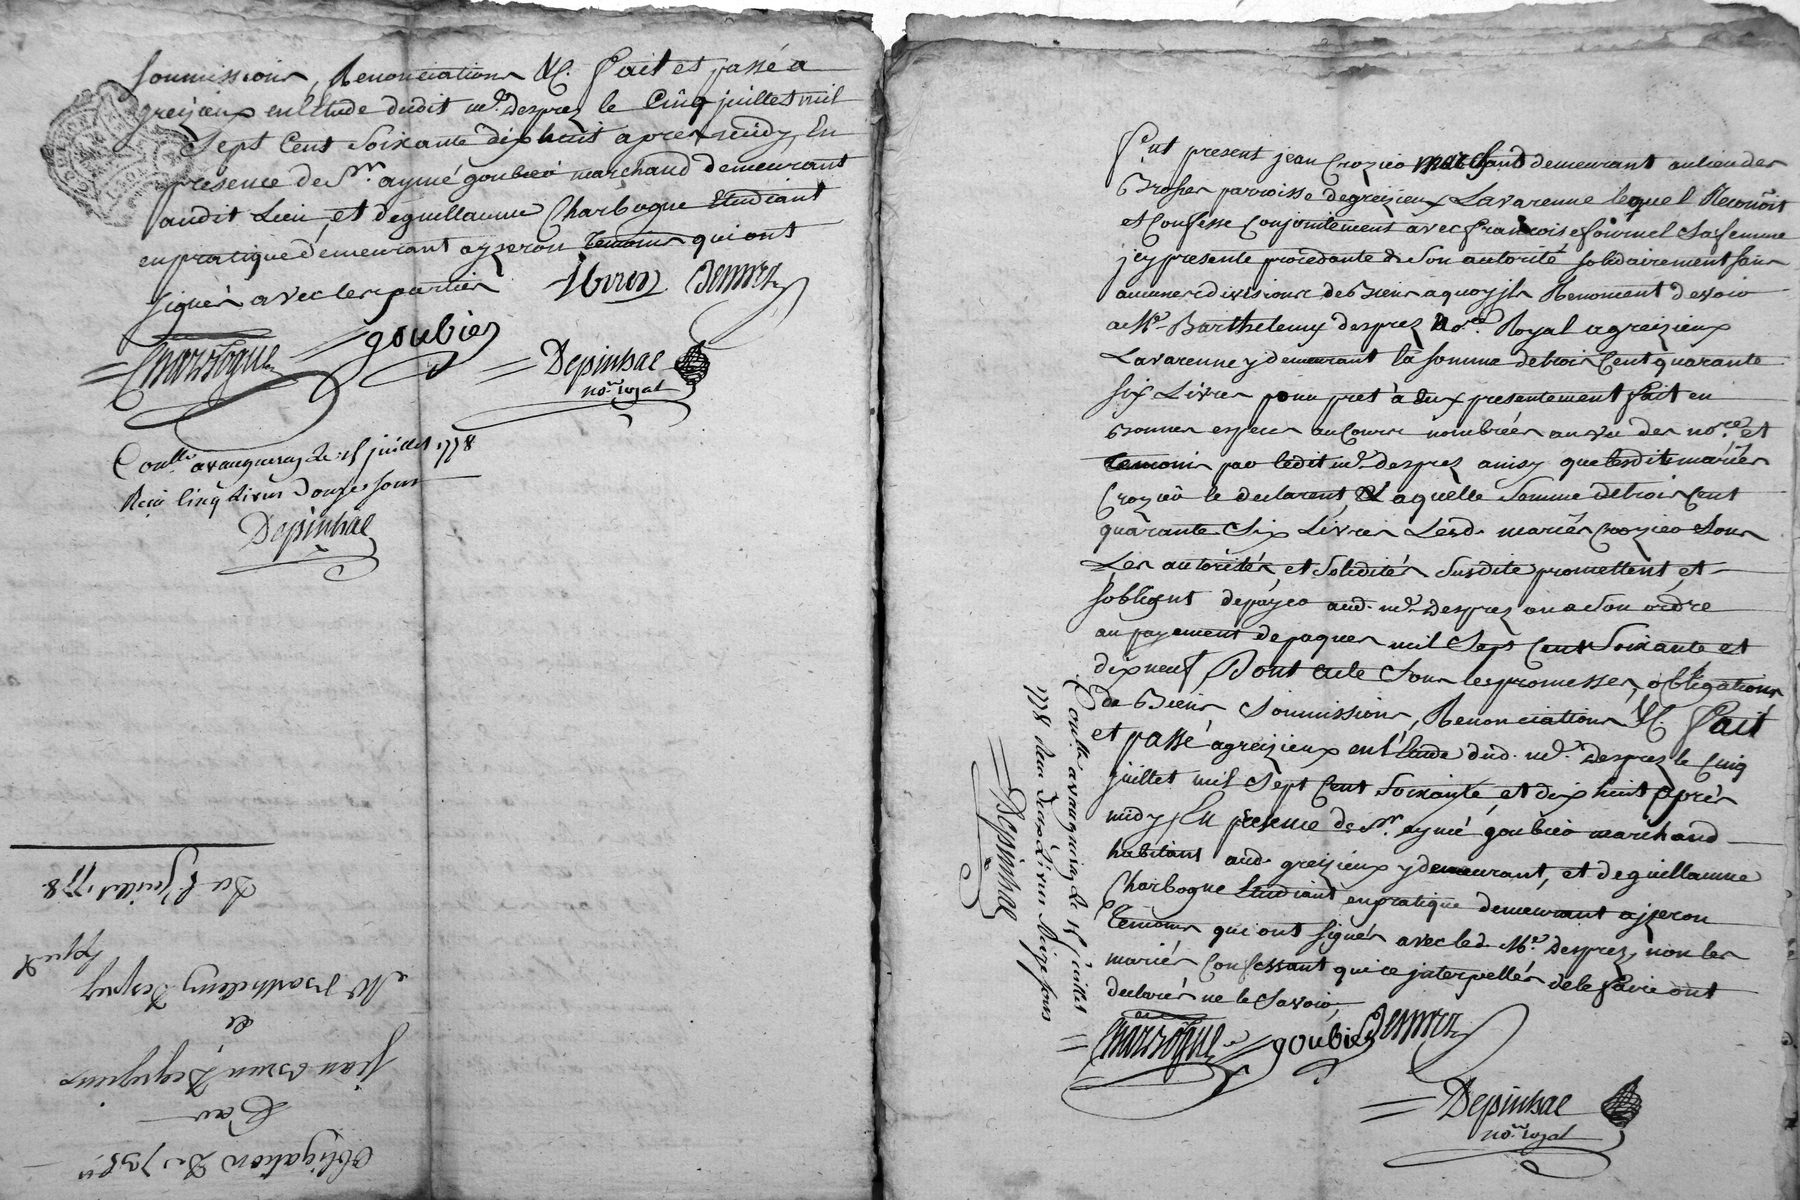 soumissions, Renonciations &c. fait et passé a
greizieux en l'Etude dudit me. Desprez le Cinq juillet mil
Sept Cent Soixante dix huit apres midy, En
presence de Sr. aymé goubier marchand demeurant
audit Lieu, et de guillaume Charbogne Etudiant
en pratique demeurant ayzeron temoins qui ont
signés avec les parties
Charbogne goubier
Depinhac
nore. royal
Conllé. a vaugneray le 15 juillet 1778
Reçu Cinq Livres Douze sous
Depinhac
Du 5 juillet 1778
Me. Barthelemy Desprez
Jean
Par
Obligation De
fut present jean Crozier marchand demeurant au lieu des
Brosses parroisse de greizieux Lavarenne lequel Reconoit
et Confesse Conjointement avec françoise fournel Sa femme
jcy presente procedante de Son autorité solidairement sans
aucune division de Biens a quoy jls Renoncent devoir
a Me. Barthelemy desprez nore. Royal a greizieux
Lavarenne y demeurant la somme de trois Cent quarante
six Livres pour pret à eux presentement fait en
Bonnes especes au Cours nombrées au vu des nores. et
temoins par ledit me. desprez ainsy que lesdits mariés
Crozier le declarent, Laquelle Somme de trois Cent
quarante Six Livres Lesd. mariés Crozier Sous
Les autorités, et Solidités Susdite promettent, et
s'obligent de payer aud. me. Desprez ou a Son ordre
au payement de paques mil Sept Cent Soixante et
dix neuf Dont acte Sous les promesses, obligations
de Biens Soumissions, Renonciations &c. fait
et passé a greizieux en l'Etude dud. me. Desprez le Cinq
juillet mil Sept Cent Soixante et dix huit après
midy En presence de Sr. aymé goubier marchand
habitant aud. greizieux y demeurant, et de guillaume
Charbogne Etudiant en pratique demeurant ayzeron
temoins qui ont signés avec led. Me. Desprez, non les
mariés Confessant qui ce jnterpellés de le faire ont
declarés ne le Savoir,
Charbogne goubier Desprez
Depinhac
nore. royal
Conllé. a vaugneray le 15 juillet
1778 Reçu deux Livres Seize sous
Depinhac